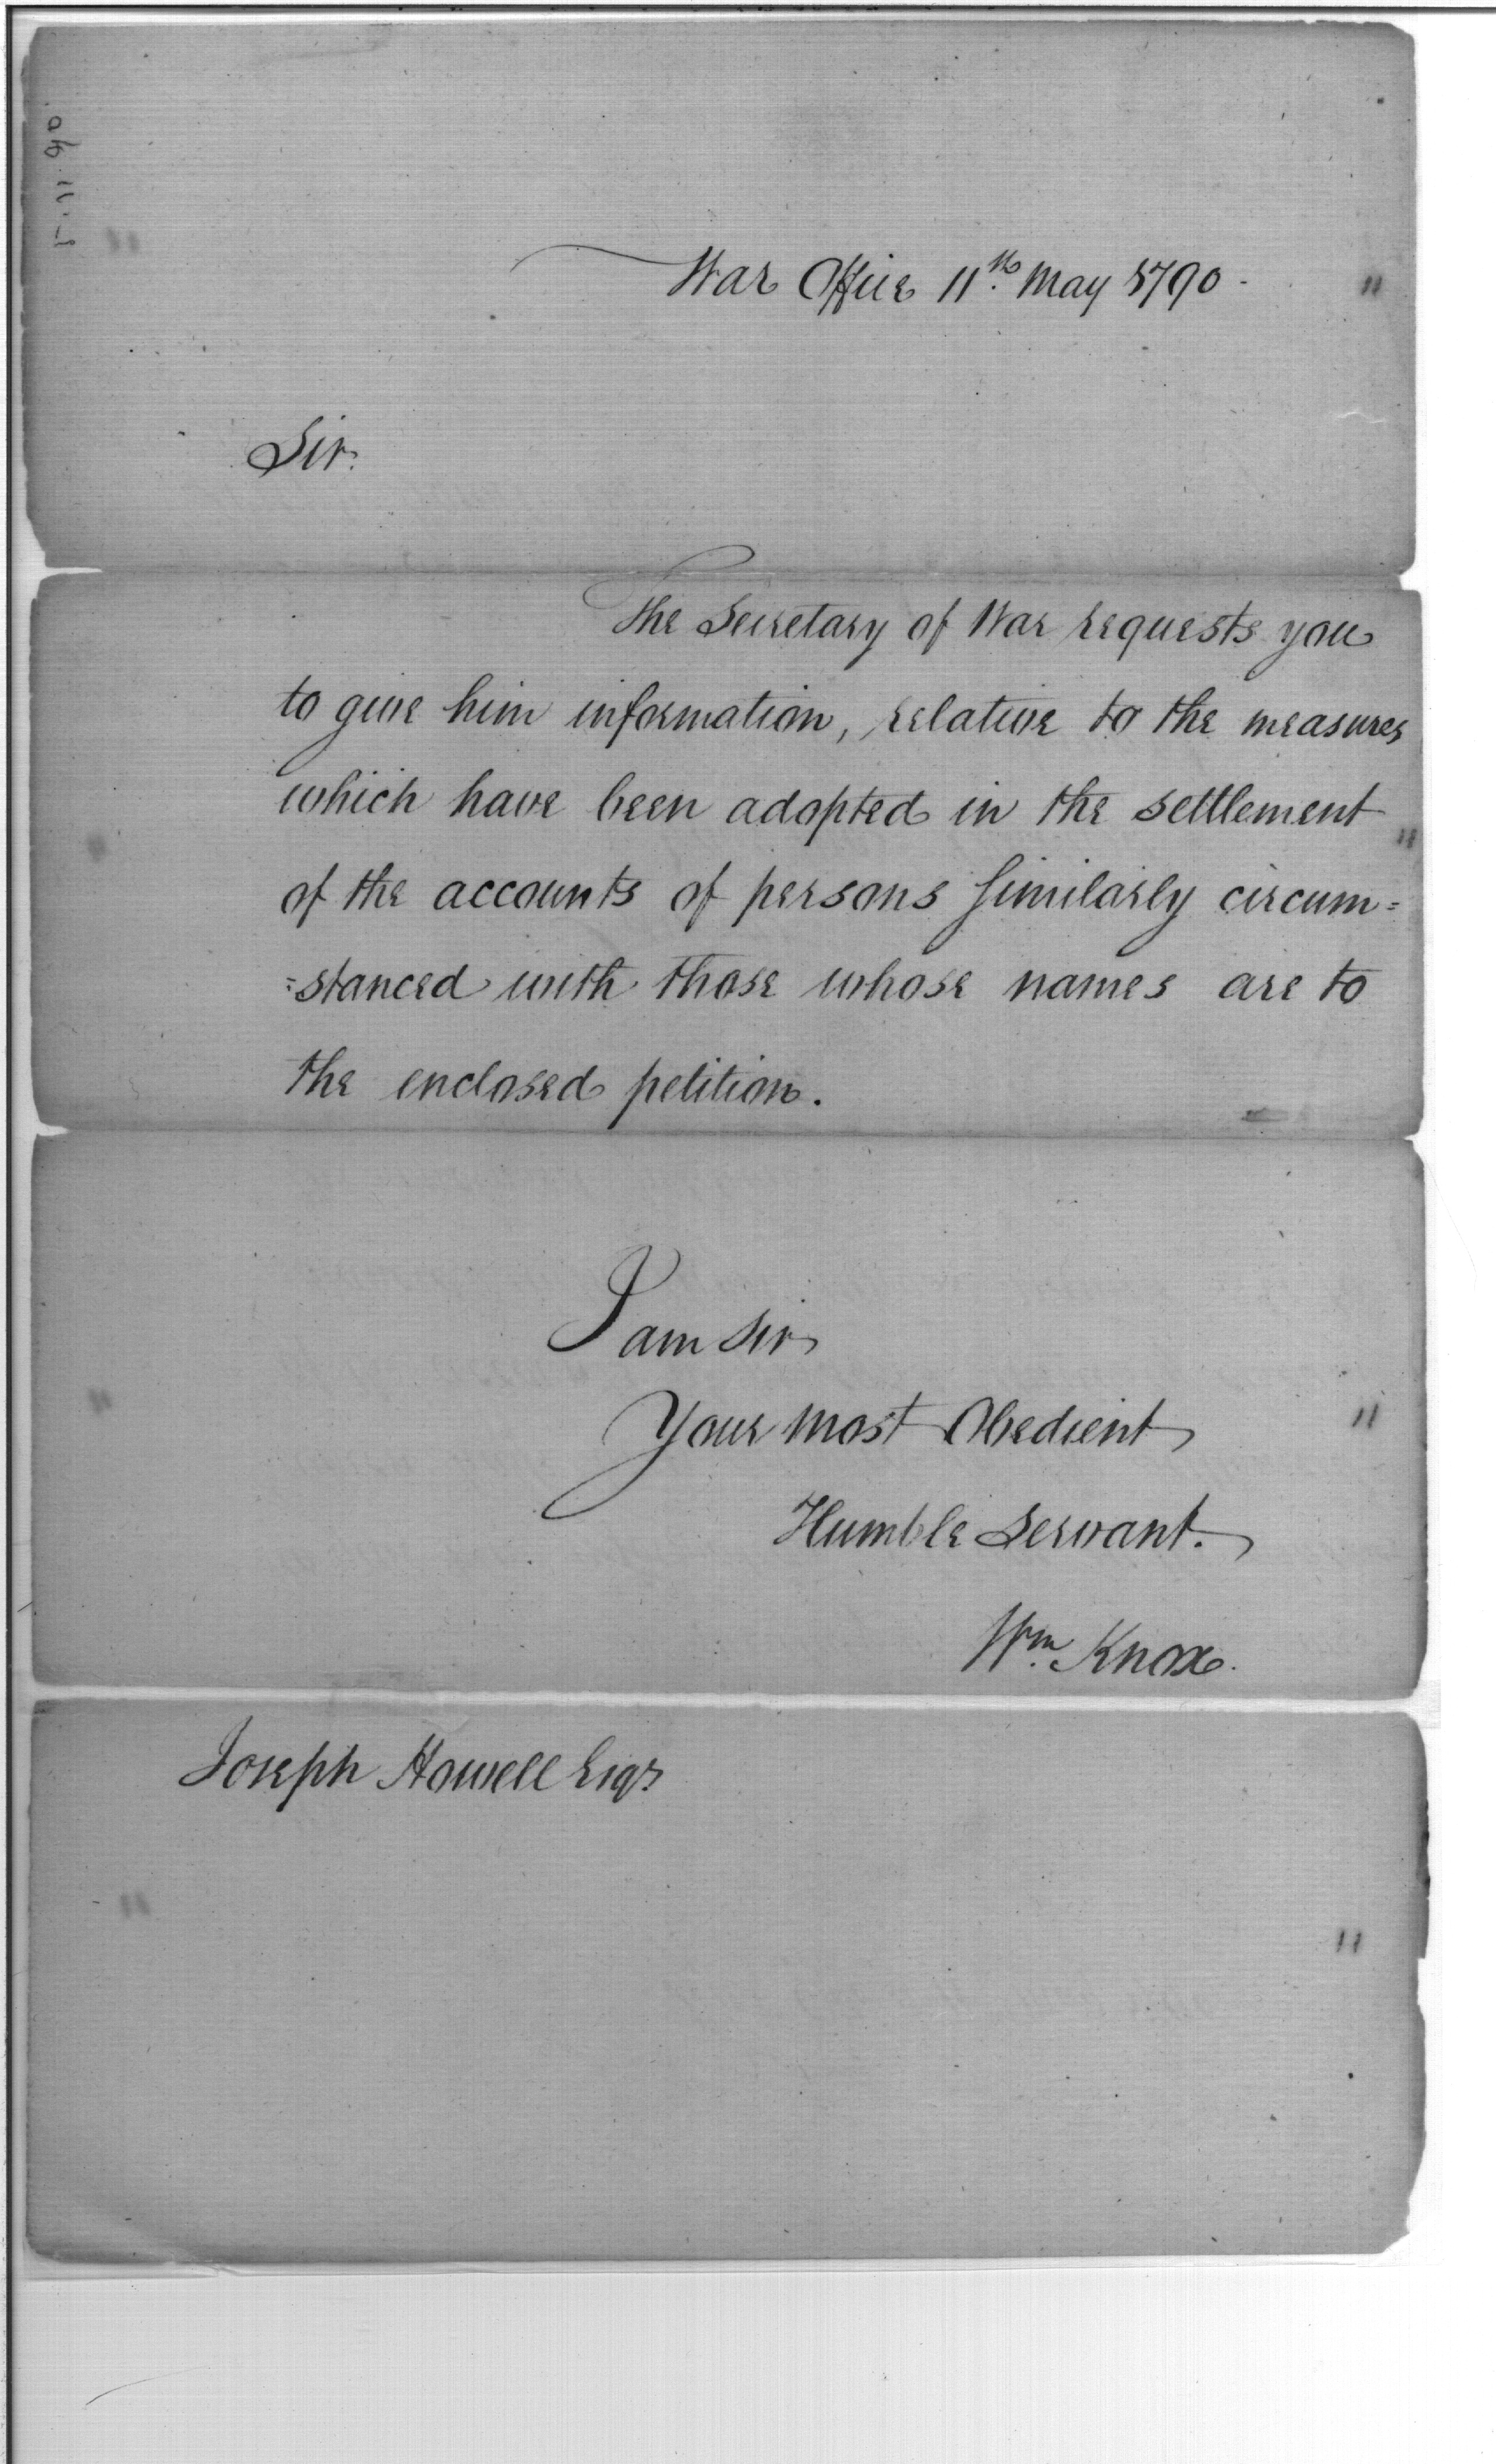 5-11-90.
War Office 11th. May 1790-
Sir.
The Secretary of War requests you
to give him information, relative to the measures
which have been adopted in the settlement
of the accounts of persons similarly circum=
=stanced with those whose names are to
the enclosed petition.
I am Sir
Your most Obedient
Humble Servant.
Wm. Knox.
Joseph Howell Esqr